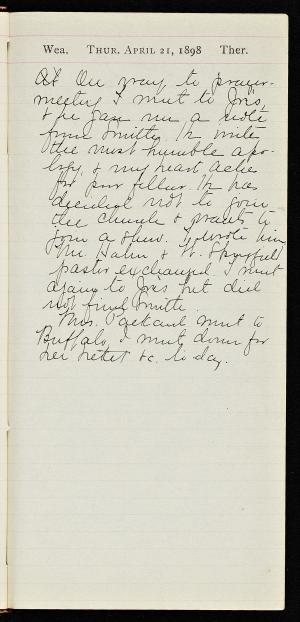 Wea. THUR. APRIL 21, 1898 Ther.
At the way to prayer-
meeting I went to Jos',
& he gave me a note
from Smith. He writes
the most humble apo-
logy, & my heart aches
for poor fellow. He has
decided not to join
the church & wants to
join a show. I wrote him
Mr. Hahn & W. Springfield
pastor exchanged. I went
again to Jos' but did
not find Smith.
Mrs. Packard went to
Buffalo, I went down for
her ticket &c. to day.